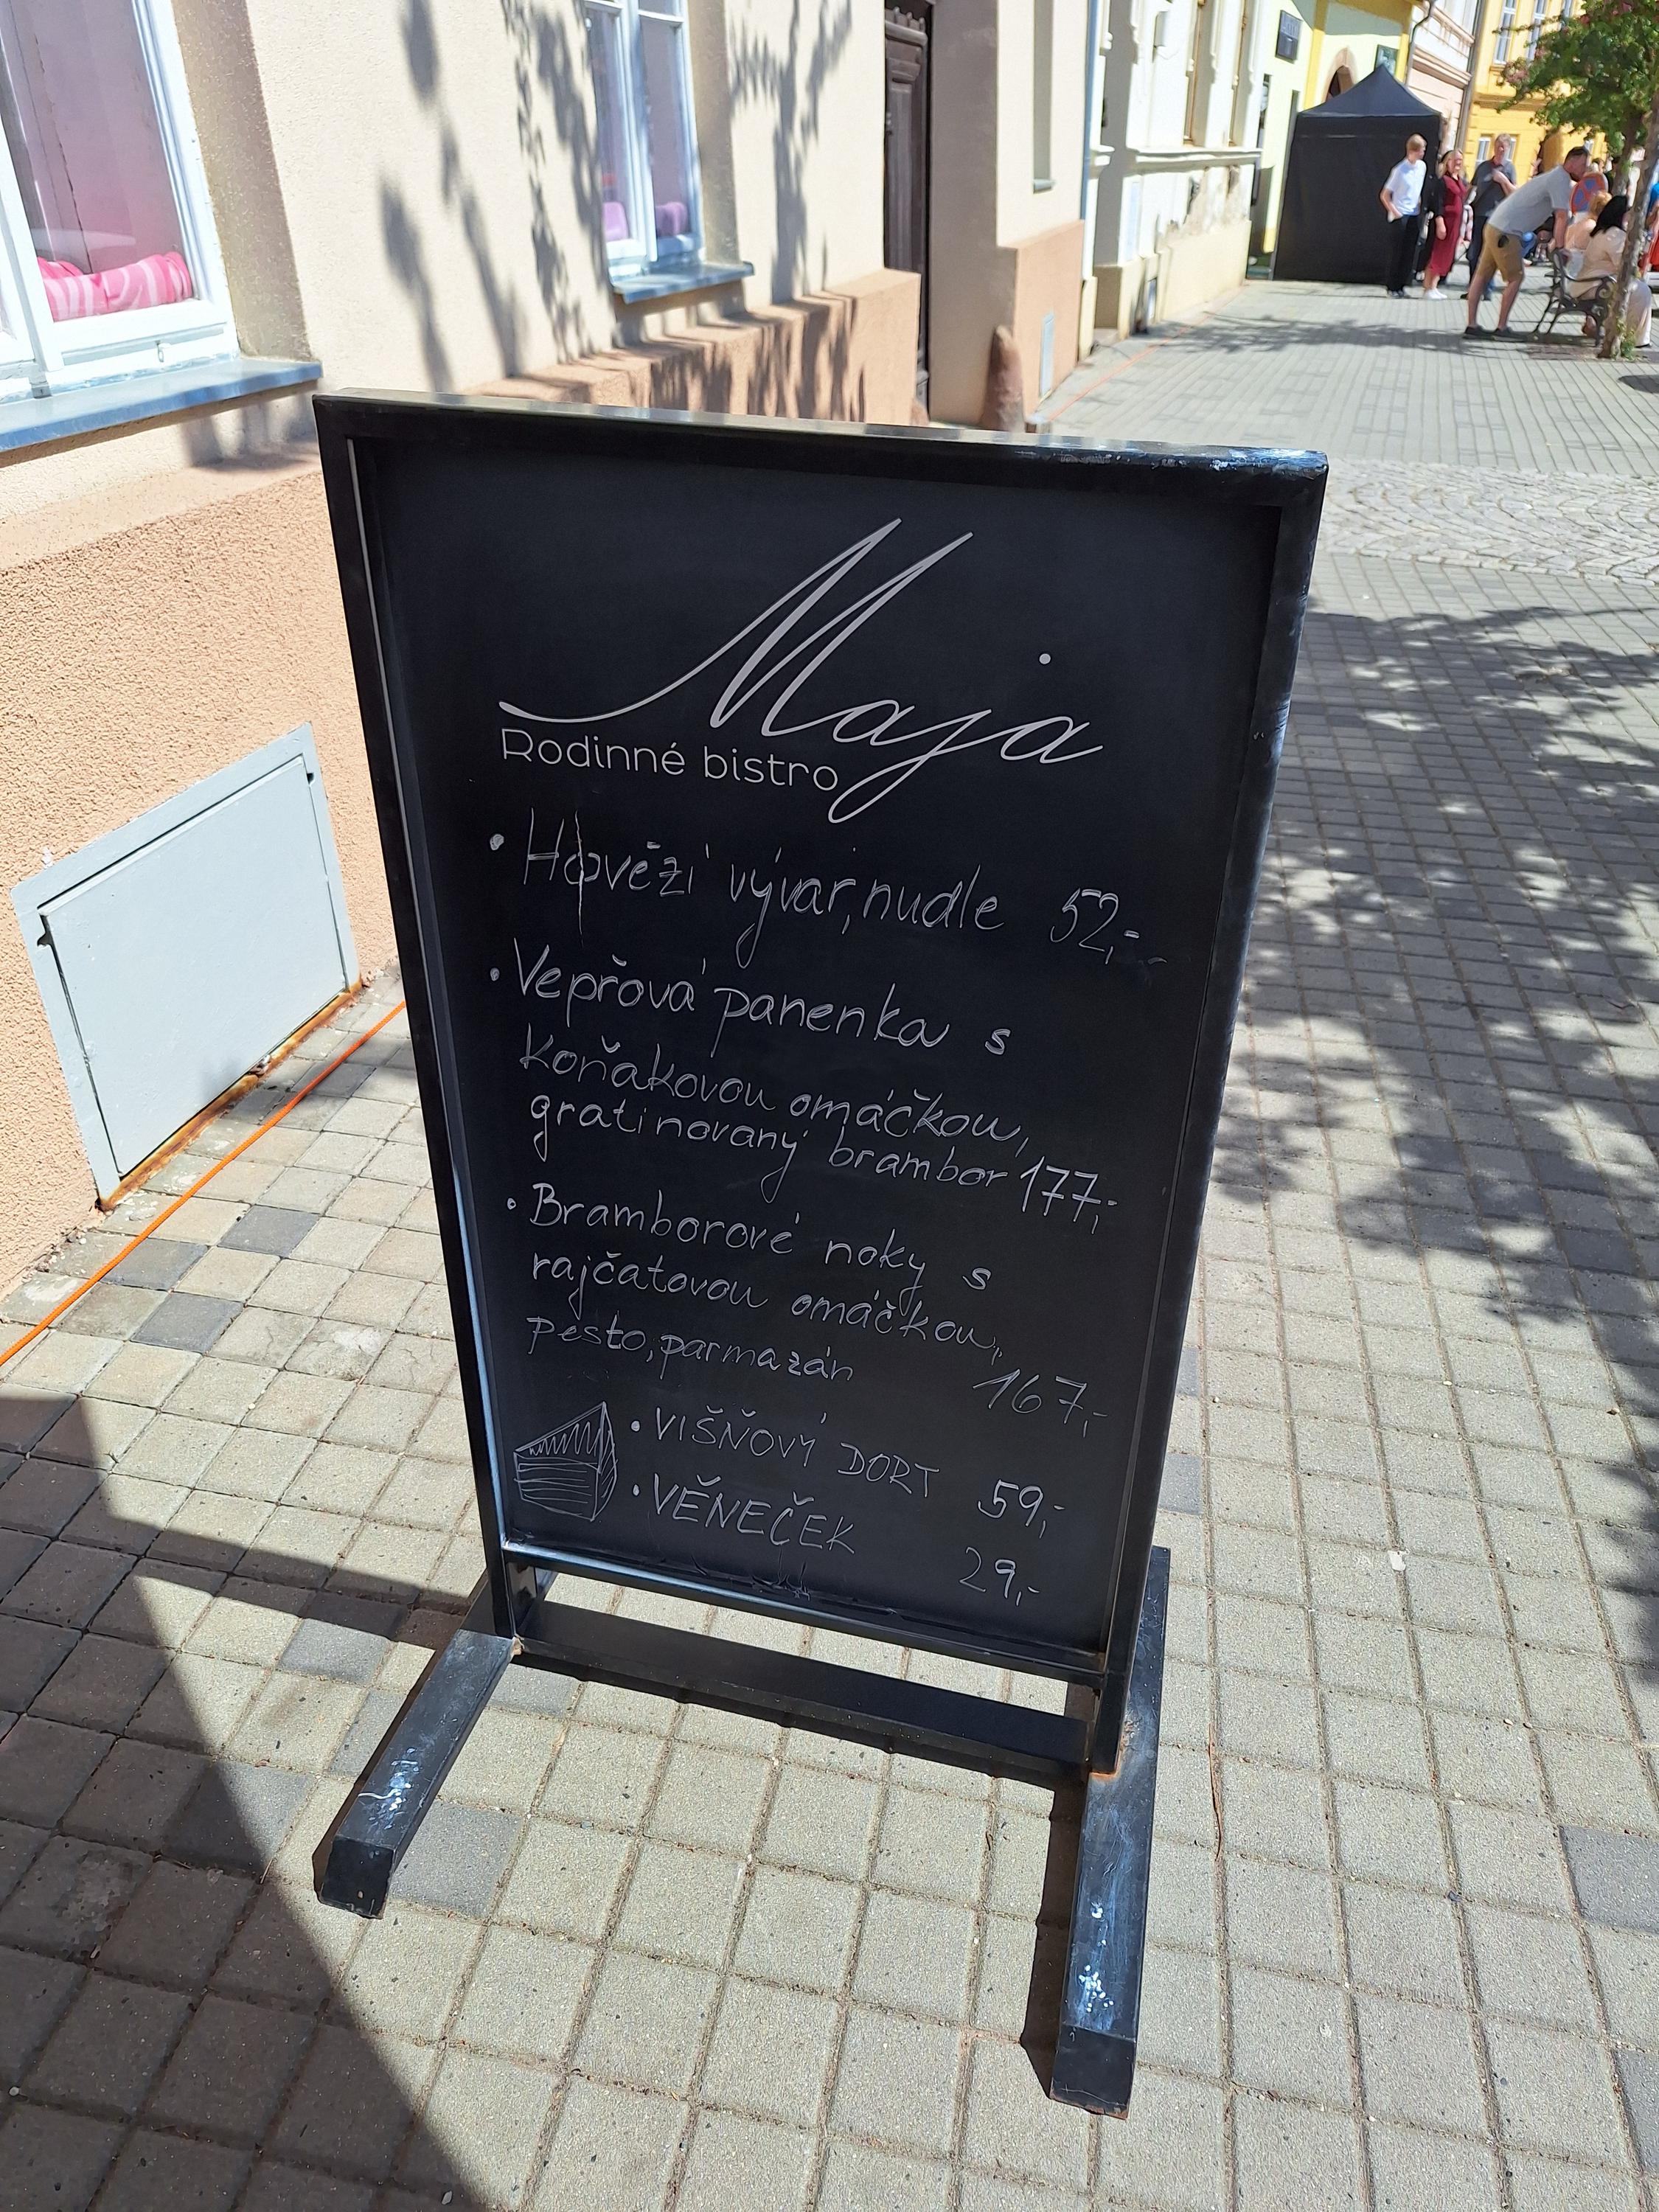 Maja
Rodinné bistro
• Hovězí vývar, nudle 52,-
• Vepřová panenka s
koňakovou omáčkou,
gratinovaný brambor 177,-
• Bramborové noky s
rajčatovou omáčkou,
pesto, parmazán 167,-
• VIŠŇOVÝ DORT 59,-
• VĚNEČEK 29,-